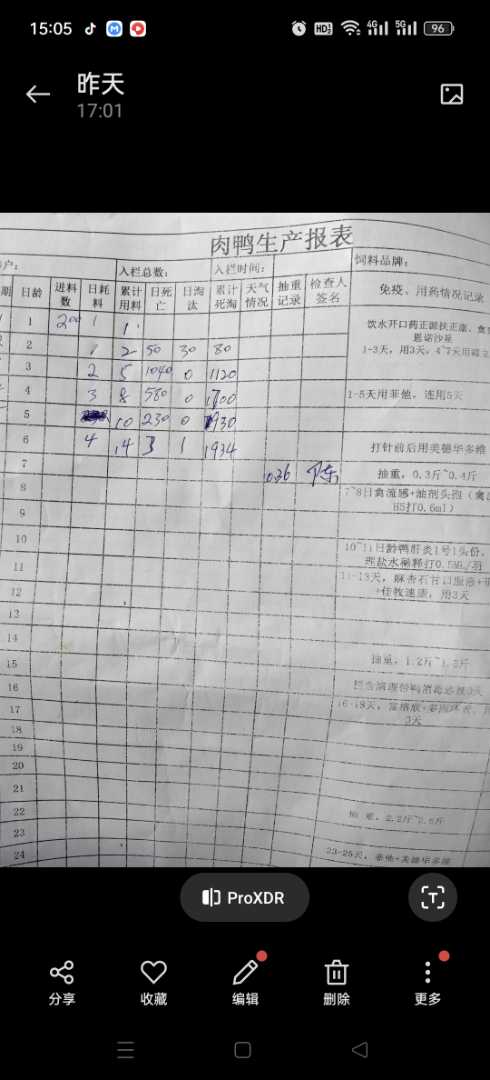 15:05
HD 4G 5G 96
昨天
17:01
肉鸭生产报表
户:
入栏总数:
入栏时间:
饲料品牌:
期 日龄 进料数 日耗料 累计用料 日死亡 日淘汰 累计死淘 天气情况 抽重记录 检查人签名 免疫、用药情况记录
1 200 1 1
饮水开口药正源扶正康、
恩诺沙星
2 1 2 50 30 80
1-3天,用3天,4~7天用
3 2 5 1040 0 1120
4 3 8 580 0 1700
1-5天用菲他,连用5天
5 10 230 0 1930
6 4 14 3 1 1934
打针前后用美德华多维
7
抽重,0.3斤~0.4斤
8
7~8日禽流感+油剂头孢(禽
H5打0.6ml)
9
10
10~11日龄鸭肝炎1号1头份,
理盐水稀释打0.5ML/羽
11
12
用3天
13
14
15
抽重,1.2斤~1.3斤
16
17
3天
18
19
20
21
22
抽重,2.2斤~2.5斤
23
24
23-25天,
ProXDR
T
分享 收藏 编辑 删除 更多